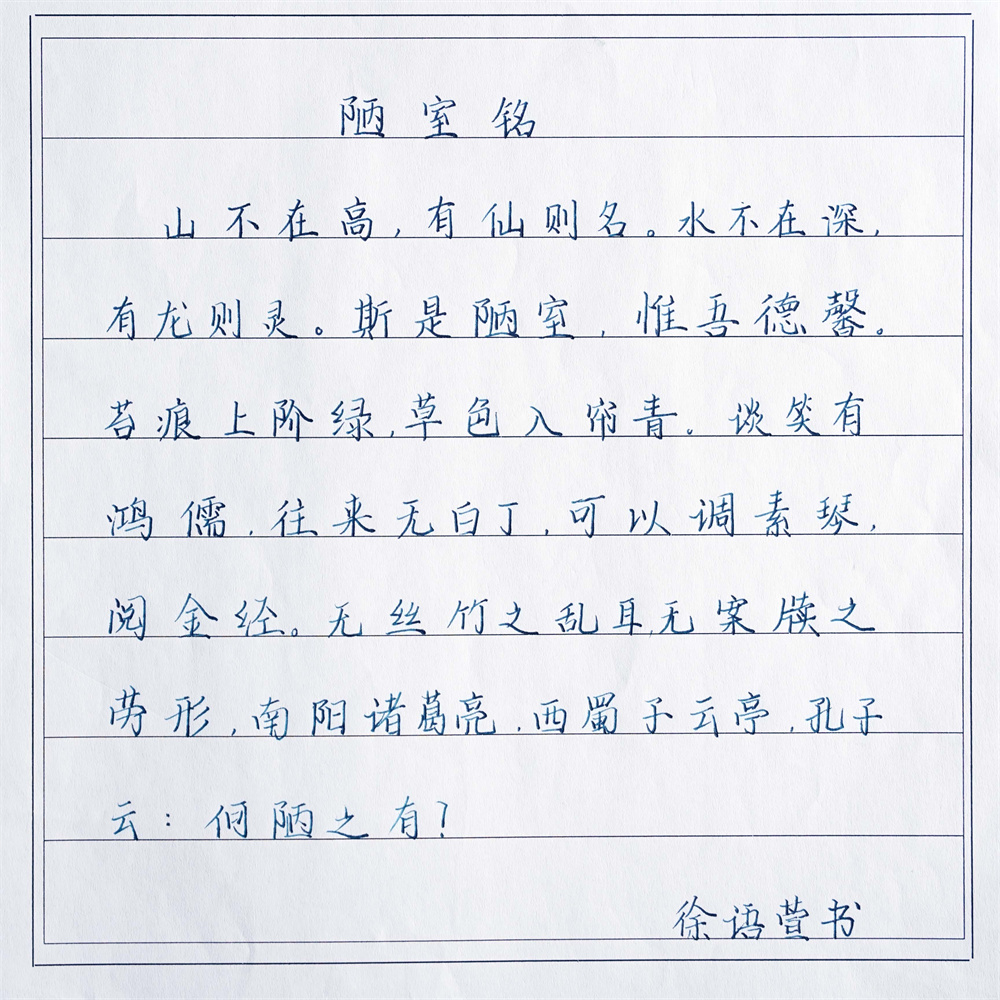 陋室铭
山不在高,有仙则名。水不在深,
有龙则灵。斯是陋室,惟吾德馨。
苔痕上阶绿,草色入帘青。谈笑有
鸿儒,往来无白丁,可以调素琴,
阅金经。无丝竹之乱耳,无案牍之
劳形,南阳诸葛亮,西蜀子云亭,孔子
云:何陋之有?
徐语萱书